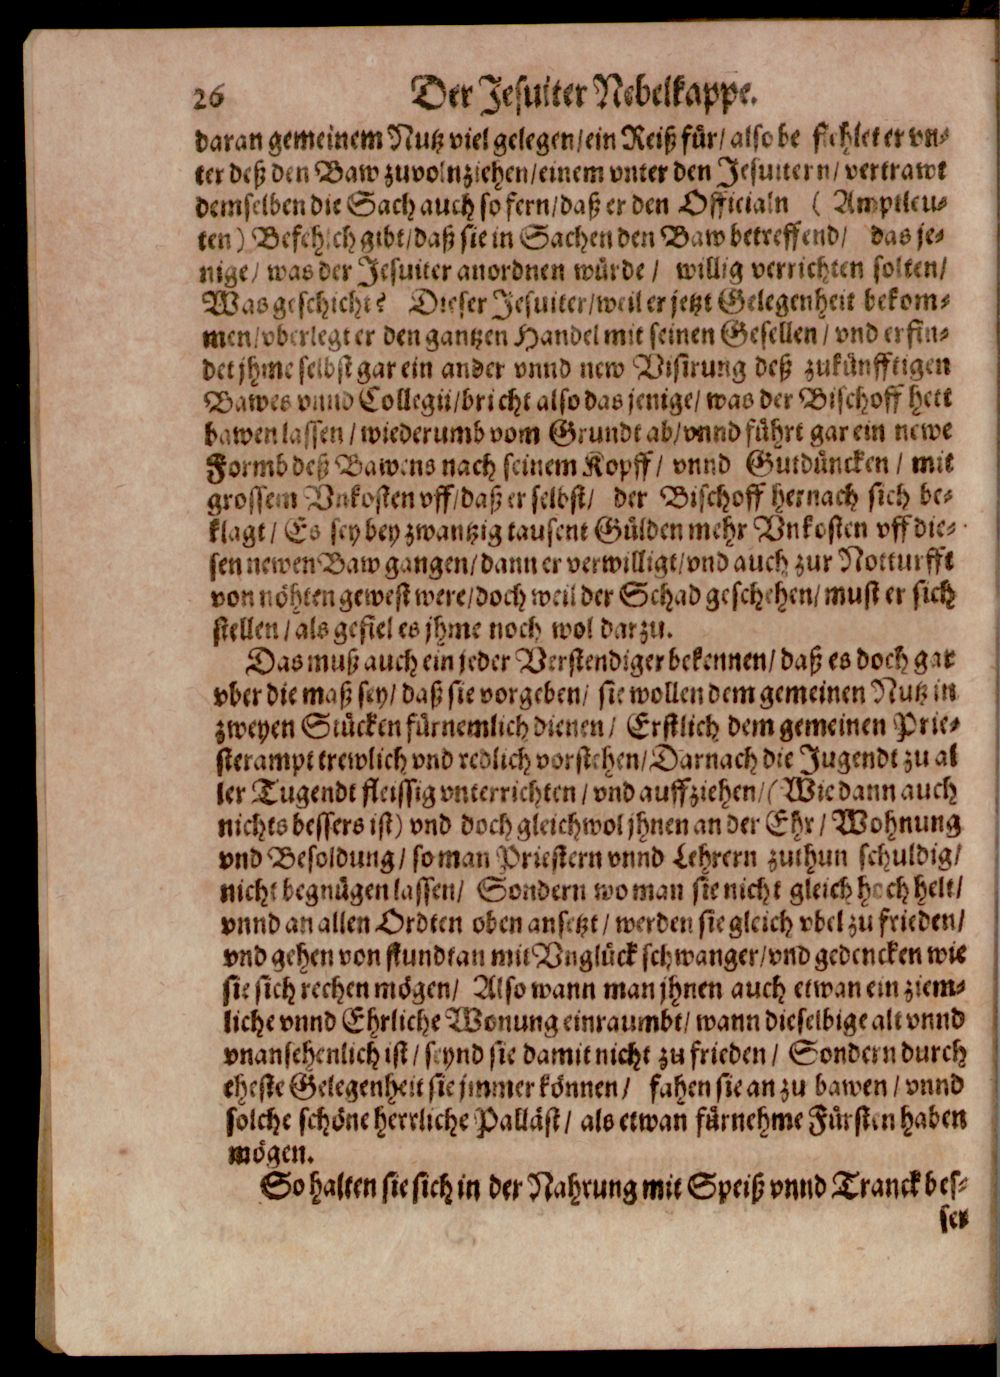 26 Der Jesuiter Nebelkappe.
daran gemeinem Nutz viel gelegen/ein Reiß für/ also be fehlet er vn⸗
ter deß den Baw zuvolnziehen/einem vnter den Jesuitern/ vertrawt
demselben die Sach auch so fern/daß er den Officialn ( Amptleu⸗
ten) Befehlch gibt/daß sie in Sachen den Baw betreffend/ das je⸗
nige/ was der Jesuiter anordnen würde / willig verrichten solten/
Was geschicht? Dieser Jesuiter/weil er jetzt Gelegenheit bekom⸗
men/vberlegt er den gantzen Handel mit seinen Gesellen / vnd erfin⸗
det jhme selbst gar ein ander vnnd new Visirung deß zukünfftigen
Bawes vnnd Collegii/bricht also das jenige/ was der Bischoff hett
bawen lassen / wiederumb vom Grundt ab/vnnd führt gar ein newe
Formb deß Bawens nach seinem Kopff / vnnd Gutdüncken / mit
grossem Vnkosten vff/daß er selbst/ der Bischoff hernach sich be⸗
klagt / Es sey bey zwantzig tausent Gülden mehr Vnkosten vff die⸗
sen newen Baw gangen/dann er verwilligt/vnd auch zur Notturfft
von nöhten gewest were/doch weil der Schad geschehen/must er sich
stellen / als gefiel es jhme noch wol darzu.
Das muß auch ein jeder Verstendiger bekennen/ daß es doch gar
vber die maß sey/ daß sie vorgeben/ sie wollen dem gemeinen Nutz in
zweyen Stücken fürnemlich dienen / Erstlich dem gemeinen Prie⸗
sterampt trewlich vnd redlich vorstehen/Darnach die Jugendt zu al
ler Tugendt fleissig vnterrichten / vnd auffziehen/(Wie dann auch
nichts bessers ist) vnd doch gleichwol jhnen an der Ehr / Wohnung
vnd Besoldung/ so man Priestern vnnd Lehrern zuthun schuldig/
nicht begnügen lassen/ Sondern wo man sie nicht gleich hoch helt/
vnnd an allen Ordten oben ansetzt / werden sie gleich vbel zu frieden/
vnd gehen von stundt an mit Vnglück schwanger/vnd gedencken wie
sie sich rechen mögen/ Also wann man jhnen auch etwan ein ziem⸗
liche vnnd Ehrliche Wonung einraumbt/ wann dieselbige alt vnnd
vnansehenlich ist / seynd sie damit nicht zu frieden / Sondern durch
eheste Gelegenheit sie jmmer können / fahen sie an zu bawen / vnnd
solche schöne herrliche Palläst / als etwan fürnehme Fürsten haben
mögen.
So halten sie sich in der Nahrung mit Speiß vnnd Tranck bes⸗
ser